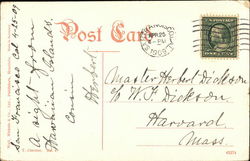 Post Card
San Francisco Cal 4-25-09
A sight from
Hawaiian Islands.
Cousin
Herbert
APR 25
1909
Master Herbert Dickson
c/o W. F. Dickson.
Harvard,
Mass.